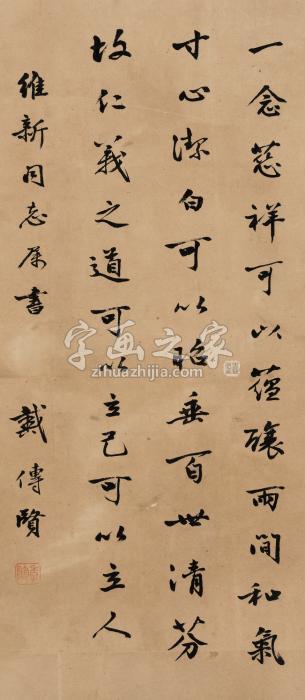 一念慈祥可以醞釀兩間和氣
寸心潔白可以昭垂百世清芬
故仁義之道可以立己可以立人
維新同志属書
戴傳賢
字画之家
zihuazhijia.com